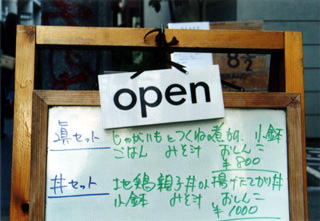 8 1/2
open
眞セット じゃがいもとつくねの煮物、小鉢
ごはん みそ汁 おしんこ
¥800
丼セット 地鶏親子丼 or 揚げたてかり丼
小鉢 みそ汁 おしんこ
¥1000